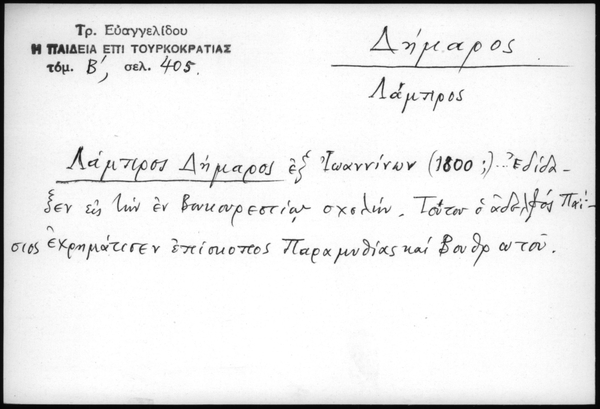 Τρ. Εὐαγγελίδου
Η ΠΑΙΔΕΙΑ ΕΠΙ ΤΟΥΡΚΟΚΡΑΤΙΑΣ
τόμ. Β', σελ. 405.
Δήμαρος
Λάμπρος
Λάμπρος Δήμαρος ἐξ Ἰωαννίνων (1800;) Ἐδίδα-
ξεν εἰς τὴν ἐν Βουκουρεστίῳ σχολήν. Τούτου ὁ ἀδελφός Παΐ-
σιος ἐχρημάτισεν ἐπίσκοπος Παραμυθίας καί Βουθρωτοῦ.